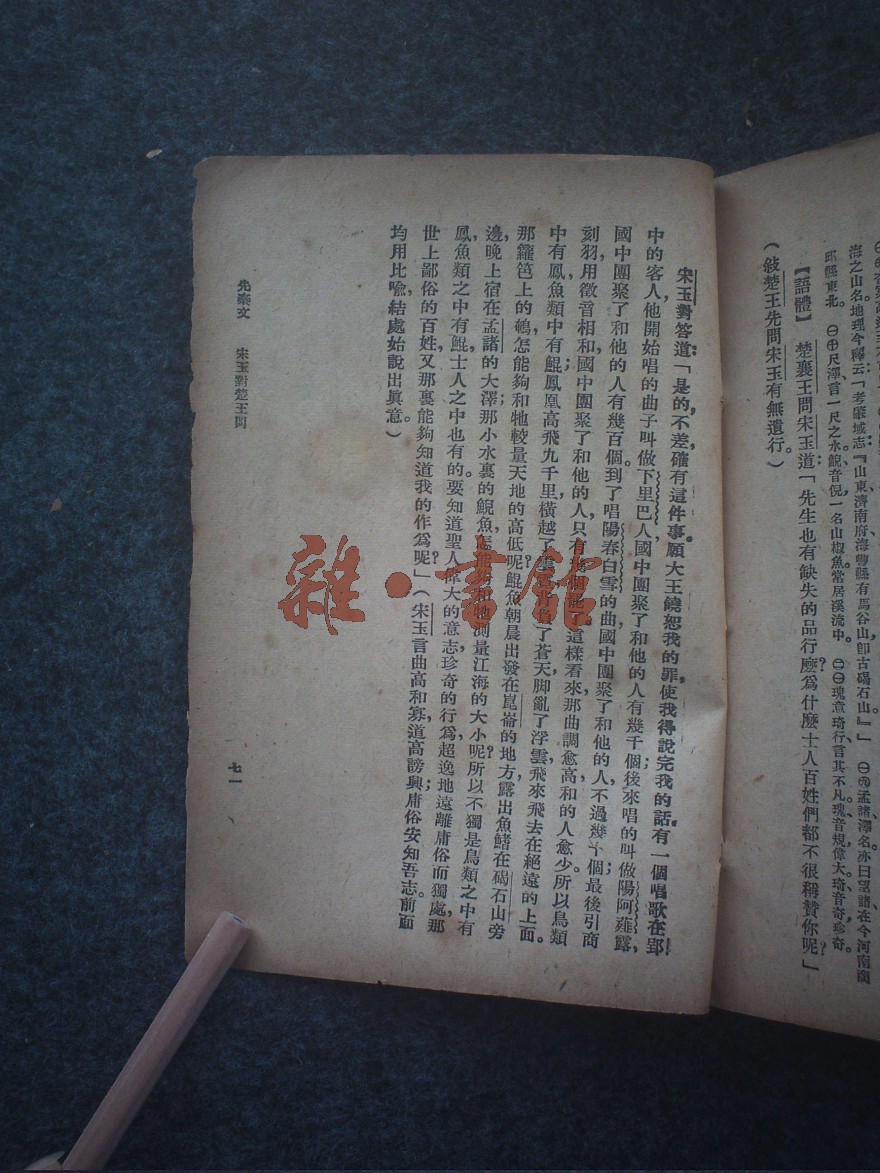 海之山名地理今釋云：「考肇域志『山東、濟南府海豐縣有馬谷山、卽古碣石山。』」㊀㊈孟諸、澤名、亦曰望諸、在今河南商
邱縣東北。㊀㊉尺澤、言一尺之水、鯢、音倪、一名山椒魚、常居溪流中。㊁㊀瑰意琦行、言其不凡、瑰、音規、偉大。琦、音奇、珍奇。
【語體】楚襄王問宋玉道：「先生也有缺失的品行麼？爲什麼士人百姓們都不很稱贊你呢？」
（敍楚王先問宋玉有無遺行。）
宋玉對答道：「是的，不差，確有這件事。願大王饒恕我的罪，使我得說完我的話。有一個唱歌在郢
中的客人，他開始唱的曲子叫做下里巴人，國中團聚了和他的人有幾千個；後來唱的叫做陽阿薤露，
國中團聚了和他的人有幾百個。到了唱陽春白雪的曲，國中團聚了和他的人，不過幾十個；最後引商
刻羽，用徵音相和，國中團聚了和他的人，只有幾個罷了。這樣看來，那曲調愈高，和的人愈少。所以鳥類
中有鳳，魚類中有鯤；鳳凰高飛九千里，橫越了雲霓，背負了蒼天，脚亂了浮雲，飛來飛去在絕遠的上面。
那籬笆上的鷃，怎能夠和牠較量天地的高低呢？鯤魚朝晨出發在崑崙的地方，露出魚鰭在碣石山旁
邊，晚上宿在孟諸的大澤；那小水裏的鯢魚，怎能夠和牠測量江海的大小呢？所以不獨是鳥類之中有
鳳，魚類之中有鯤；士人之中也有的。要知道聖人偉大的意志，珍奇的行爲，超逸地遠離庸俗而獨處，那
世上鄙俗的百姓，又那裏能夠知道我的作爲呢？」（宋玉言曲高和寡，道高謗興；庸俗安知吾志。前面
均用比喩，結處始說出眞意。）
先秦文　宋玉對楚王問
七一
雜·書館